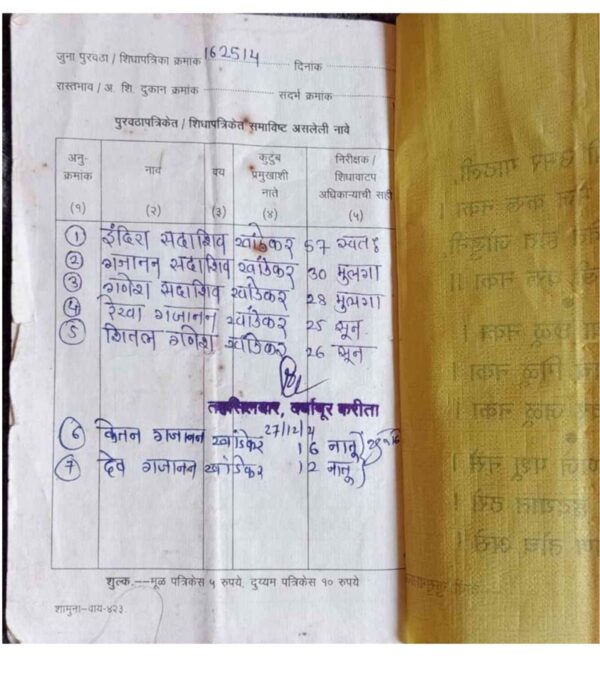 जुना पुरवठा / शिधापत्रिका क्रमांक 162514 दिनांक
रास्तभाव / अ. शि. दुकान क्रमांक संदर्भ क्रमांक
पुरवठापत्रिकेत / शिधापत्रिकेत समाविष्ट असलेली नावे
अनु- क्रमांक नाव वय कुटुंब प्रमुखाशी नाते निरीक्षक / शिधावाटप अधिकाऱ्याची सही
(१) (२) (३) (४) (५)
1 इंदिरा सदाशिव खांडेकर 57 स्वतः
2 गजानन सदाशिव खांडेकर 30 मुलगा
3 गणेश सदाशिव खांडेकर 28 मुलगा
4 रेखा गजानन खांडेकर 25 सून
5 शितल गणेश खांडेकर 26 सून
तहसिलदार, करीता
27/12/
6 केतन गजानन खांडेकर 16 नातू
7 देव गजानन खांडेकर 12 नातू
शुल्क.---मूळ पत्रिकेस ५ रुपये, दुय्यम पत्रिकेस १० रुपये
शामुना-वाय-४२३